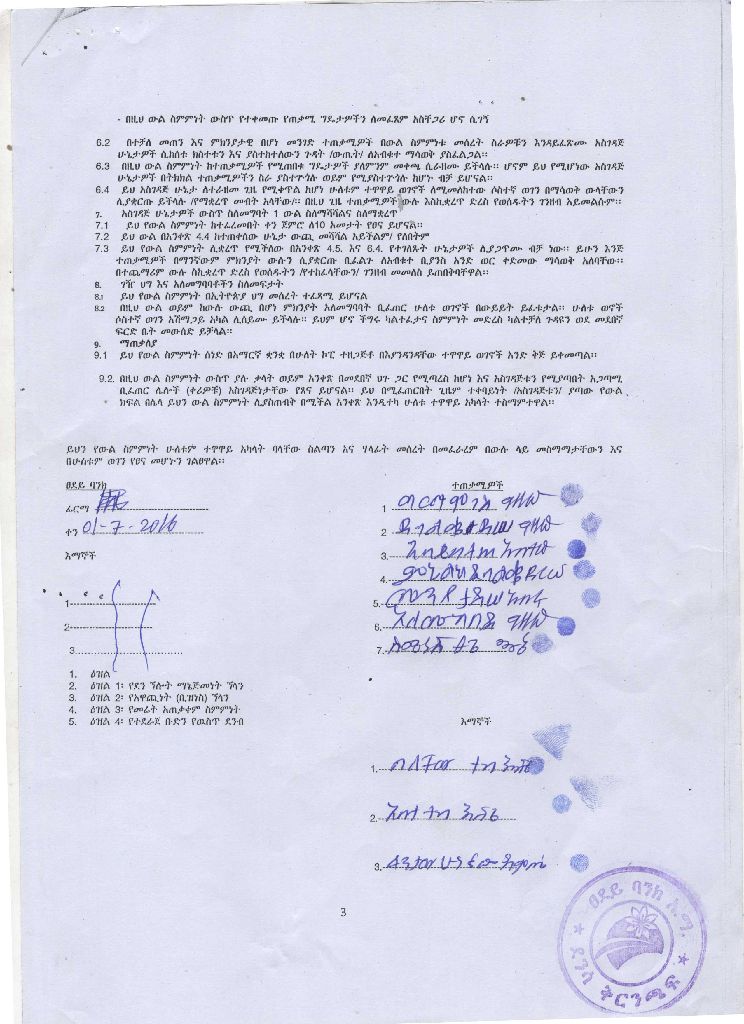 - በዚህ ውል ስምምነት ውስጥ የተቀመጡ የጠቃሚ ግዴታዎችን ለመፈጸም አስቸጋሪ ሆኖ ሲገኝ
6.2 በተቻለ መጠን እና ምክንያታዊ በሆነ መንገድ ተጠቃሚዎች በውል ስምምነቱ መሰረት ስራዎቹን እንዳይፈጽሙ አስገዳጅ
ሁኔታዎች ሲከሰቱ ክስተቱን እና ያስከተለውን ጉዳት /ውጤት/ ለአብቁተ ማሳወቅ ያስፈልጋል።
6.3 በዚህ ውል ስምምነት ከተጠቃሚዎች የሚጠበቁ ግዴታዎች ያለምንም መቀጫ ሲራዘሙ ይችላሉ። ሆኖም ይህ የሚሆነው አስገዳጅ
ሁኔታዎች በትክክል ተጠቃሚዎችን ስራ ያስተጓጎሉ ወይም የሚያስተጓጎሉ ከሆኑ ብቻ ይሆናል።
6.4 ይህ አስገዳጅ ሁኔታ ለተራዘመ ጊዜ የሚቀጥል ከሆነ ሁለቱም ተዋዋይ ወገኖች ለሚመለከተው ሶስተኛ ወገን በማሳወቅ ውላቸውን
ሊያቋርጡ ይችላሉ /የማቋረጥ መብት አላቸው/። በዚህ ጊዜ ተጠቃሚዎች ውሉ እስኪቋረጥ ድረስ የወሰዱትን ገንዘብ አይመልሱም።
7. አስገዳጅ ሁኔታዎች ውስጥ ስለመግባት 1 ውል ስለማሻሻልና ስለማቋረጥ
7.1 ይህ የውል ስምምነት ከተፈረመበት ቀን ጀምሮ ለ10 አመታት የፀና ይሆናል።
7.2 ይህ ውል በአንቀጽ 4.4 ከተጠቀሰው ሁኔታ ውጪ መሻሻል አይችልም/ የለበትም
7.3 ይህ የውል ስምምነት ሊቋረጥ የሚችለው በአንቀጽ 4.5. እና 6.4. የተገለጹት ሁኔታዎች ሊያጋጥሙ ብቻ ነው። ይሁን እንጅ
ተጠቃሚዎች በማንኛውም ምክንያት ውሉን ሲያቋርጡ ቢፈልጉ ለአብቁተ ቢያንስ አንድ ወር ቀድመው ማሳወቅ አለባቸው።
በተጨማሪም ውሉ ስኪቋረጥ ድረስ የወሰዱትን /የተከፈላቸውን/ ገንዘብ መመለስ ይጠበቅባቸዋል።
8. ገዥ ህግ እና አለመግባባቶችን ስለመፍታት
8.1 ይህ የውል ስምምነት በኢትዮጵያ ህግ መሰረት ተፈጻሚ ይሆናል
8.2 በዚህ ውል ወይም ከውሉ ውጪ በሆነ ምክንያት አለመግባባት ቢፈጠር ሁለቱ ወገኖች በውይይት ይፈቱታል። ሁለቱ ወኖች
ሶስተኛ ወገን አሸማጋይ አካል ሊሰይሙ ይችላሉ። ይህም ሆኖ ችግሩ ካልተፈታና ስምምነት መድረስ ካልተቻለ ጉዳዩን ወደ መደበኛ
ፍርድ ቤት መውሰድ ይቻላል።
9. ማጠቃለያ
9.1 ይህ የውል ስምምነት ሰነድ በአማርኛ ቋንቋ በሁለት ኮፒ ተዘጋጅቶ በእያንዳንዳቸው ተዋዋይ ወገኖች አንድ ቅጅ ይቀመጣል።
9.2. በዚህ ውል ስምምነት ውስጥ ያሉ ቃላት ወይም አንቀጽ በመደበኛ ህጉ ጋር የሚጣረስ ከሆነ እና አስገዳጅቱን የሚያጣበት አጋጣሚ
ቢፈጠር ሌሎች (ቀሪዎቹ) አስገዳጅነታቸው የጸና ይሆናል። ይህ በሚፈጠርበት ጊዜም ተቀባይነት /አስገዳጅቱን/ ያጣው የውል
ክፍል በሌላ ይህን ውል ስምምነት ሊያስጠብት በሚችል አንቀጽ እንዲተካ ሁለቱ ተዋዋይ አካላት ተስማምተዋል።
ይህን የውል ስምምነት ሁለቱም ተዋዋይ አካላት ባላቸው ስልጣን እና ሃላፊት መሰረት በመፈራረም በውሉ ላይ መስማማታቸውን እና
በሁስቱም ወገን የፀና መሆኑን ገልፀዋል።
ፀደይ ባንክ
ተጠቃሚዎች
ፊርማ
ቀን 01-7-2016
እማኞች
1
2
3
1
2
3.
4.
5.
6.
7.
1. ዕዝል
2. ዕዝል 1፡ የደን ኘሎት ማኔጅመነት ኘላን
3. ዕዝል 2፡ የአዋጪነት (ቢዝነስ) ኘላን
4. ዕዝል 3፡ የመሬት አጠቃቀም ስምምነት
5. ዕዝል 4፡ የተደራጀ ቡድን የዉስጥ ደንብ
እማኞች
1.
2.
3.
3
ፀደይ ባንክ አ.ማ.
ዳንግላ ቅርንጫፍ